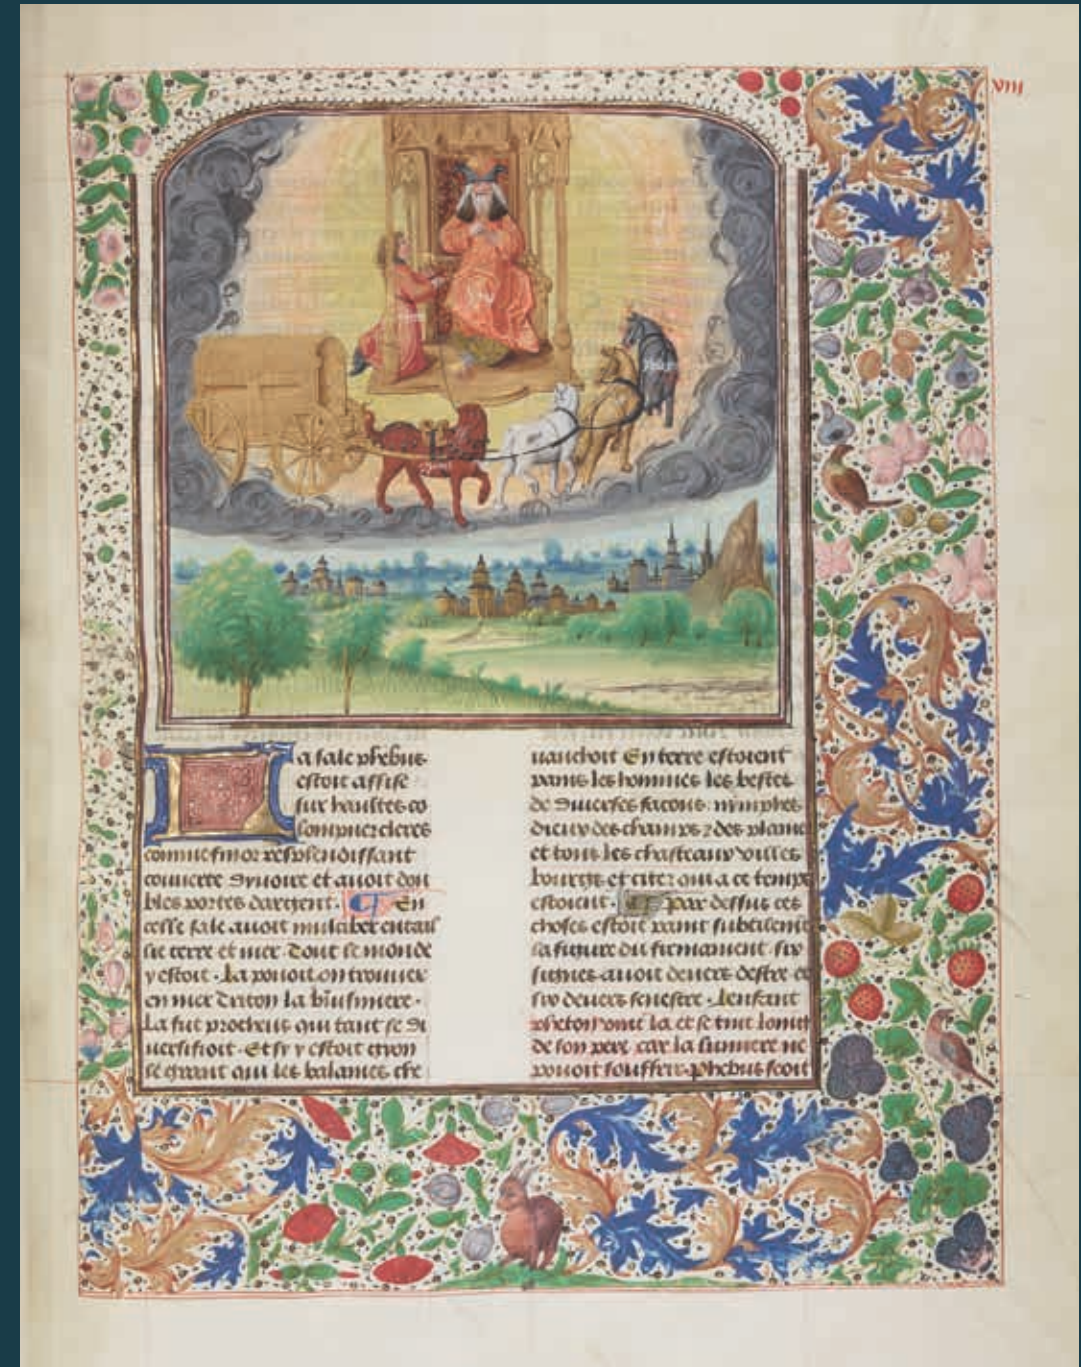 viii
La sale phebus
estoit assise
sur haultes co
lompnes cleres
comme fin or resplendissant
couverte dyvoire et avoit dou
bles portes dargent. En
celle sale avoit mulciber entail
lie terre et mer. Tout le monde
y estoit. La pouoit on trouver
en mer Triton la
La fut protheus qui tant se di
versifioit. Et sy y estoit egeon
le geant qui les balaines che
vauchoit En terre estoient
pains les hommes les bestes
de diverses facons. nymphes
dieux des champs & des plains
et tous les chasteaux villes
bourgs et citez qui a ce temps
estoient. Par dessus ces
choses estoit paint subtilemt
la figure du firmament. six
signes avoit devers destre et
six devers senestre. Lenfant
pheton vint la et se tint loing
de son pere car la lumiere ne
pouoit souffrir. Phebus seoit